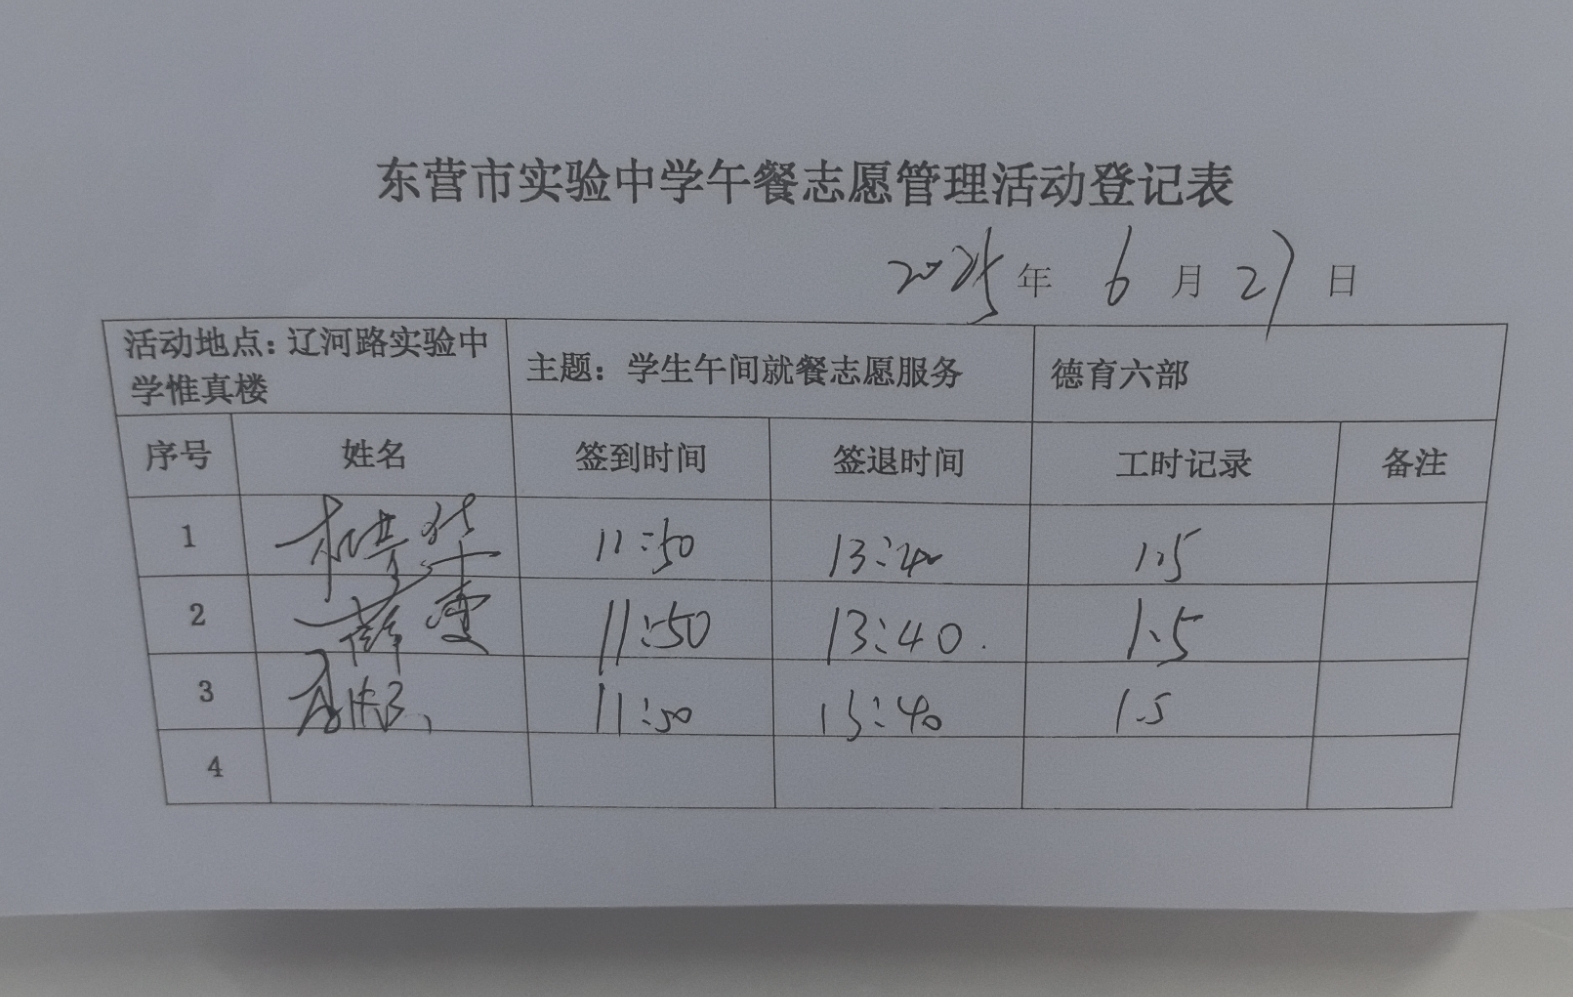 东营市实验中学午餐志愿管理活动登记表
2025年 6月27日
活动地点：辽河路实验中学惟真楼 主题：学生午间就餐志愿服务 德育六部
序号 姓名 签到时间 签退时间 工时记录 备注
1 11:50 13:40 1.5
2 薛雯 11:50 13:40. 1.5
3 11:50 13:40 1.5
4